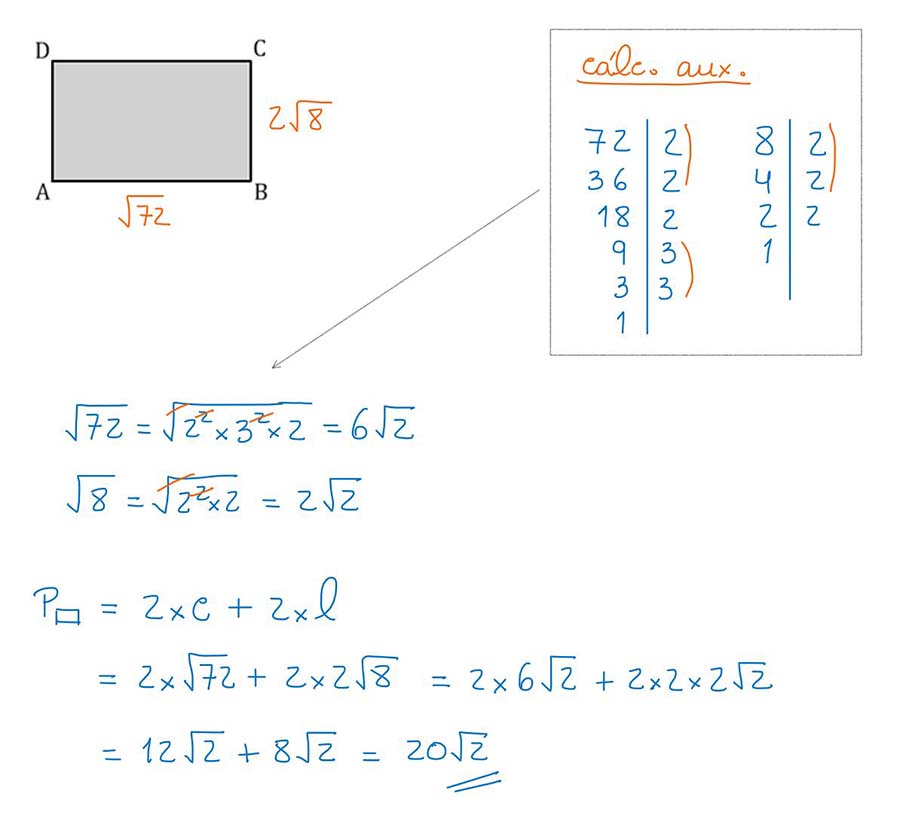 D C
2√8
A B
√72
cálc. aux.
72 | 2
36 | 2
18 | 2
9 | 3
3 | 3
1 |
8 | 2
4 | 2
2 | 2
1 |
√72 = √2²×3²×2 = 6√2
√8 = √2²×2 = 2√2
P▭ = 2×c + 2×l
= 2×√72 + 2×2√8 = 2×6√2 + 2×2×2√2
= 12√2 + 8√2 = 20√2